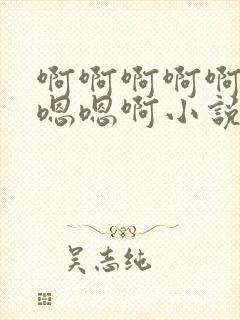 啊啊啊啊啊
嗯嗯啊小説
吴志纯